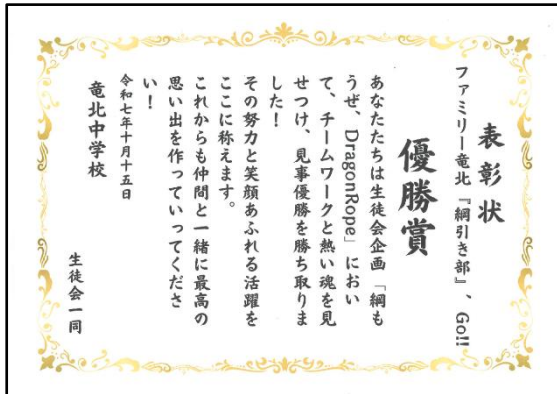 表彰状
ファミリー竜北『綱引き部』、Go!!
優勝賞
あなたたちは生徒会企画「綱も
うぜ、DragonRope」におい
て、チームワークと熱い魂を見
せつけ、見事優勝を勝ち取りま
した！
その努力と笑顔あふれる活躍を
ここに称えます。
これからも仲間と一緒に最高の
思い出を作っていってくださ
い！
令和七年十月十五日
竜北中学校
生徒会一同